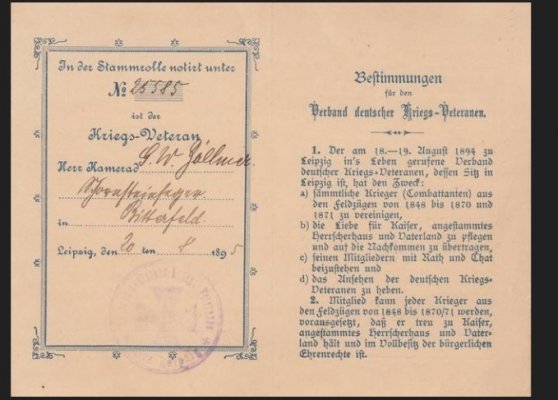 In der Stammrolle notirt unter
No 25585
ist der
Kriegs-Veteran
Herr Kamerad G. W. Zöllner.
Schornsteinfeger
in Bitterfeld
Leipzig, den 20 ten 8 1895
Bestimmungen
für den
Verband deutscher Kriegs-Veteranen.
1. Der am 18.—19. August 1894 zu
Leipzig in's Leben gerufene Verband
deutscher Kriegs-Veteranen, dessen Sitz in
Leipzig ist, hat den Zweck:
a) sämmtliche Krieger (Combattanten) aus
den Feldzügen von 1848 bis 1870 und
1871 zu vereinigen,
b) die Liebe für Kaiser, angestammtes
Herrscherhaus und Vaterland zu pflegen
und auf die Nachkommen zu übertragen,
c) seinen Mitgliedern mit Rath und That
beizustehen und
d) das Ansehen der deutschen Kriegs-
Veteranen zu heben.
2. Mitglied kann jeder Krieger aus
den Feldzügen von 1848 bis 1870/71 werden,
vorausgesetzt, daß er treu zu Kaiser,
angestammtes Herrscherhaus und Vater-
land hält und im Vollbesitz der bürgerlichen
Ehrenrechte ist.